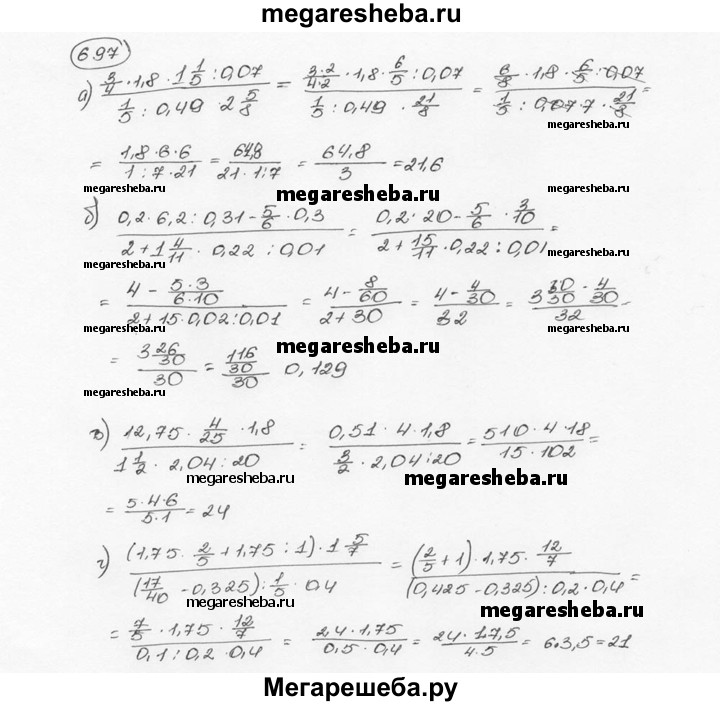 megaresheba.ru
697)
а) (3/4 · 1,8 · 1 1/5 : 0,07)/(1/5 : 0,49 · 2 5/8) = (3·2/4·2 · 1,8 · 6/5 : 0,07)/(1/5 : 0,49 · 21/8) = (6/8 · 1,8 · 6/5 : 0,07)/(1/5 : 0,07·7 · 21/8) =
megaresheba.ru
= (1,8·6·6)/(1:7·21) = 64,8/(21·1:7) = 64,8/3 = 21,6
megaresheba.ru megaresheba.ru
б) (0,2·6,2 : 0,31 - 5/6 · 0,3)/(2+1 4/11 · 0,22 : 0,01) = (0,2·20 - 5/6 · 3/10)/(2+ 15/11 · 0,22 : 0,01) =
megaresheba.ru
= (4 - 5·3/6·10)/(2+15·0,02:0,01) = (4 - 8/60)/(2+30) = (4 - 4/30)/32 = (3 30/30 · 4/30)/32 -
megaresheba.ru
= (3 26/30)/30 = (116/30)/30 0,129
megaresheba.ru
в) (12,75 · 4/25 · 1,8)/(1 1/2 · 2,04 : 20) = (0,51 · 4 · 1,8)/(3/2 · 2,04:20) = (510·4·18)/(15·102) =
megaresheba.ru
= (5·4·6)/(5·1) = 24
megaresheba.ru
г) ((1,75 · 2/5 + 1,75 : 1) · 1 5/7)/((17/40 - 0,325) : 1/5 · 0,4) = ((2/5 + 1) · 1,75 · 12/7)/((0,425 - 0,325) : 0,2 · 0,4) =
megaresheba.ru megaresheba.ru
= (7/5 · 1,75 · 12/7)/(0,1 : 0,2 · 0,4) = (24 · 1,75)/(0,5 · 0,4) = (24 · 17,5)/(4·5) = 6·3,5 = 21
Мегарешеба.ру